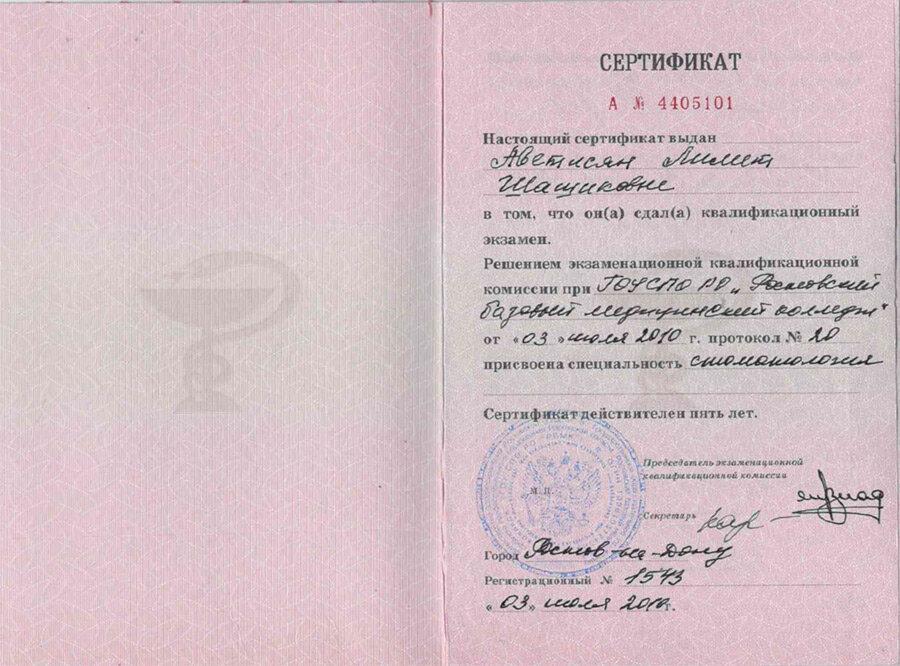 СЕРТИФИКАТ
А № 4405101
Настоящий сертификат выдан
Аветисян Лилит
Шащиковне
в том, что он(а) сдал(а) квалификационный
экзамен.
Решением экзаменационной квалификационной
комиссии при ГОУСПО РО „ Ростовский
базовый медицинский колледж"
от «03 » июля 2010 г. протокол № 20
присвоена специальность стоматология
Сертификат действителен пять лет.
Председатель экзаменационной
квалификационной комиссии
М.П.
Секретарь
Город Ростов-на-Дону
Регистрационный № 1543
« 03» июля 2010г.